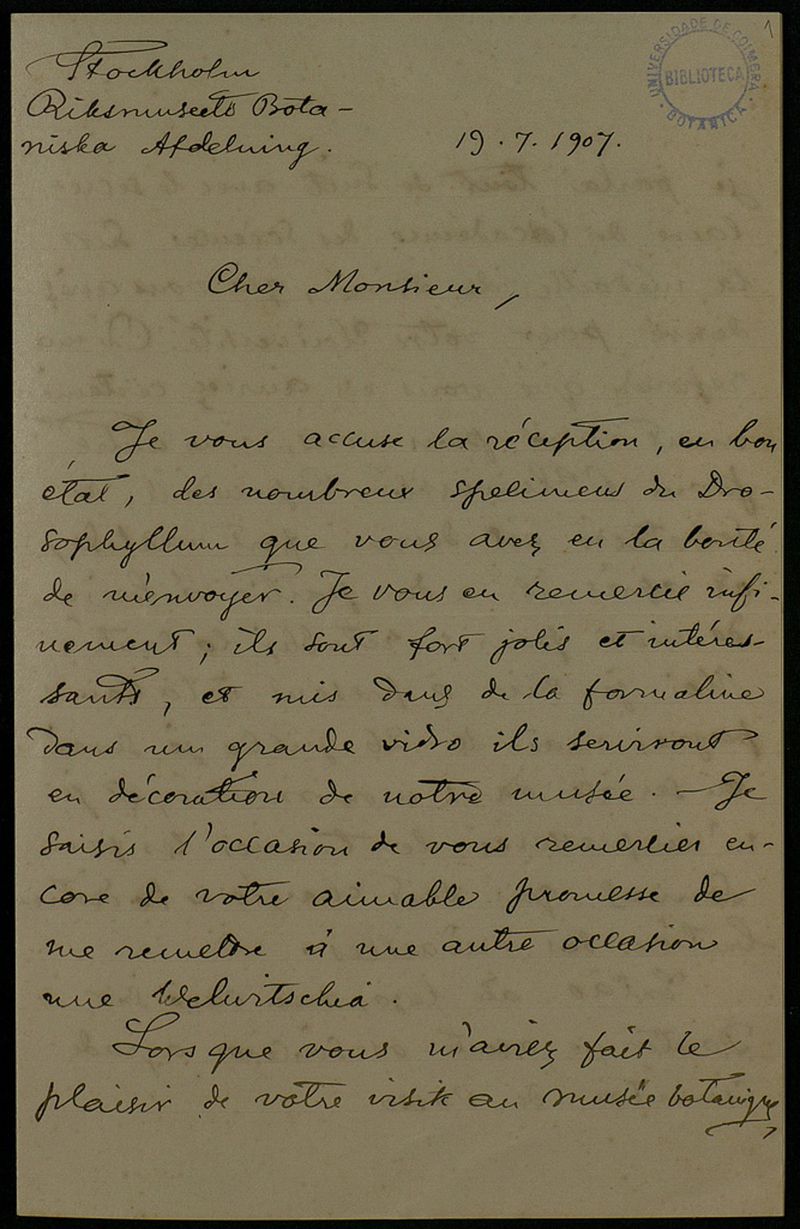 1
UNIVERSIDADE DE COIMBRA
BIBLIOTECA
BOTANICA
Stockholm
Riksmuseets Bota-
niska Afdelning.
19.7.1907.
Cher Monsieur,
Je vous accuse la réception, en bon
état, des nombreux spelimens du Dro-
sophyllum que vous avez eu la bonté
de m'envoyer. Je vous en remercie infi-
nement; ils sont fort jolis et intéres-
sants, et mis dans de la formaline
dans un grande vidro ils serviront
en décoration de notre musée. - Je
saisis l'occasion de vous remercier en-
core de votre aimable promesse de
me remettre à une autre occasion
une Welwitschia.
Lorsque vous m'aviez fait le
plaisir de votre visite au musée botanique,